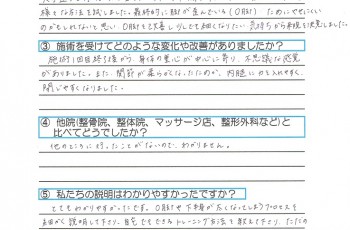 様々な方法を試しました。最終的に脚が歪んでいる(O脚)ためにやせにくい
のかもしれないと思い、O脚を改善し少しでも細くなりたい気持ちから来院を決意しました。
③ 施術を受けてどのような変化や改善がありましたか?
施術1回目終了後から、身体の重心が中心に寄り、不思議な感覚
がありました。また、関節が柔らかくなったためか、内腿に力を入れやすく、
閉じやすくなりました。
④ 他院(整骨院、整体院、マッサージ店、整形外科など)と
比べてどうでしたか?
他のところに行ったことがないので、わかりません。
⑤ 私たちの説明はわかりやすかったですか?
とてもわかりやすかったです。O脚や下半身が太くなってしまうプロセスを
細かく説明して下さり、自宅でもできるトレーニング方法を教えて下さり、ただただ